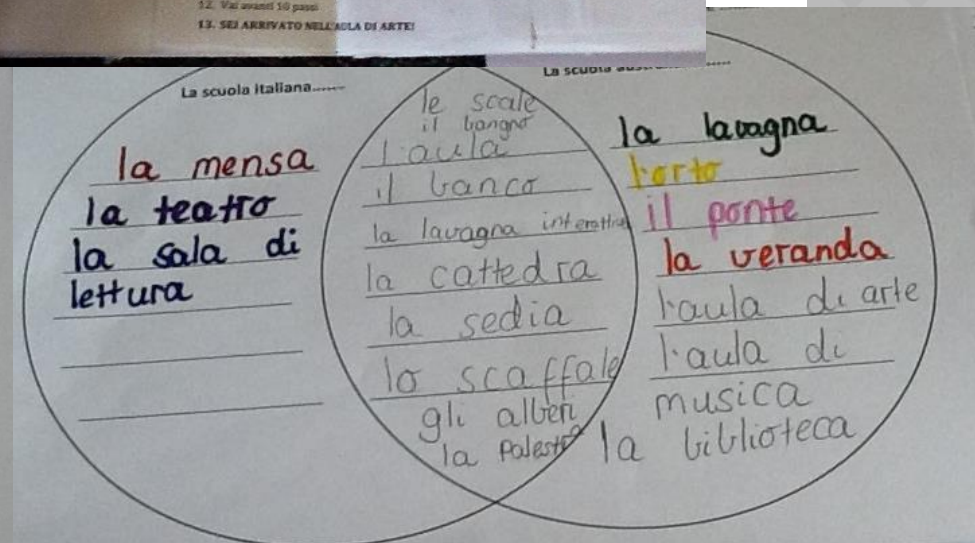 12. Vai avanti 10 passi
13. SEI ARRIVATO NELL'AULA DI ARTE!
La scuola italiana......
la mensa
la teatro
la sala di
lettura
le scale
il bangno
l'aula
il banco
la lavagna interattiva
la cattedra
la sedia
lo scaffale
gli alberi
la palestra
La scuola
la lavagna
l'orto
il ponte
la veranda
l'aula di arte
l'aula di
musica
la biblioteca